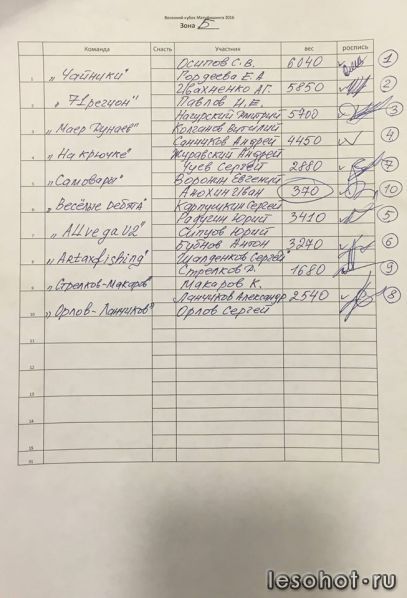 Весенний кубок Матчфишинга 2016
Зона Б
Команда Снасть Участник вес роспись
Осипов С.В. 6040 1
1 „Чайники" Гордеева Е.А
Ивахненко А.Г. 5850 2
2 „71регион" Павлов И.Е.
Нагирский Дмитрий 5700 3
3 „Маер Дунаев" Колганов Виталий
Санников Андрей 4450 4
4 „На крючке" Журавский Андрей
Чуев Сергей 2880 7
5 „Самовары" Воронин Евгений
Анохин Иван 370 10
6 „Весёлые ребята" Карпушкин Сергей
Радугин Юрий 3410 5
7 „Allvega V2" Сипуов Юрий
Буднов Антон 3240 6
8 „Artaxfishing" Гуалденков Сергей
Стрелков Д. 1680 9
9 „Стрелков-Макаров" Макаров К.
Ланчиков Александр 2540 8
10 „Орлов-Ланчиков" Орлов Сергей
11
12
13
14
15
31
lesohot.ru